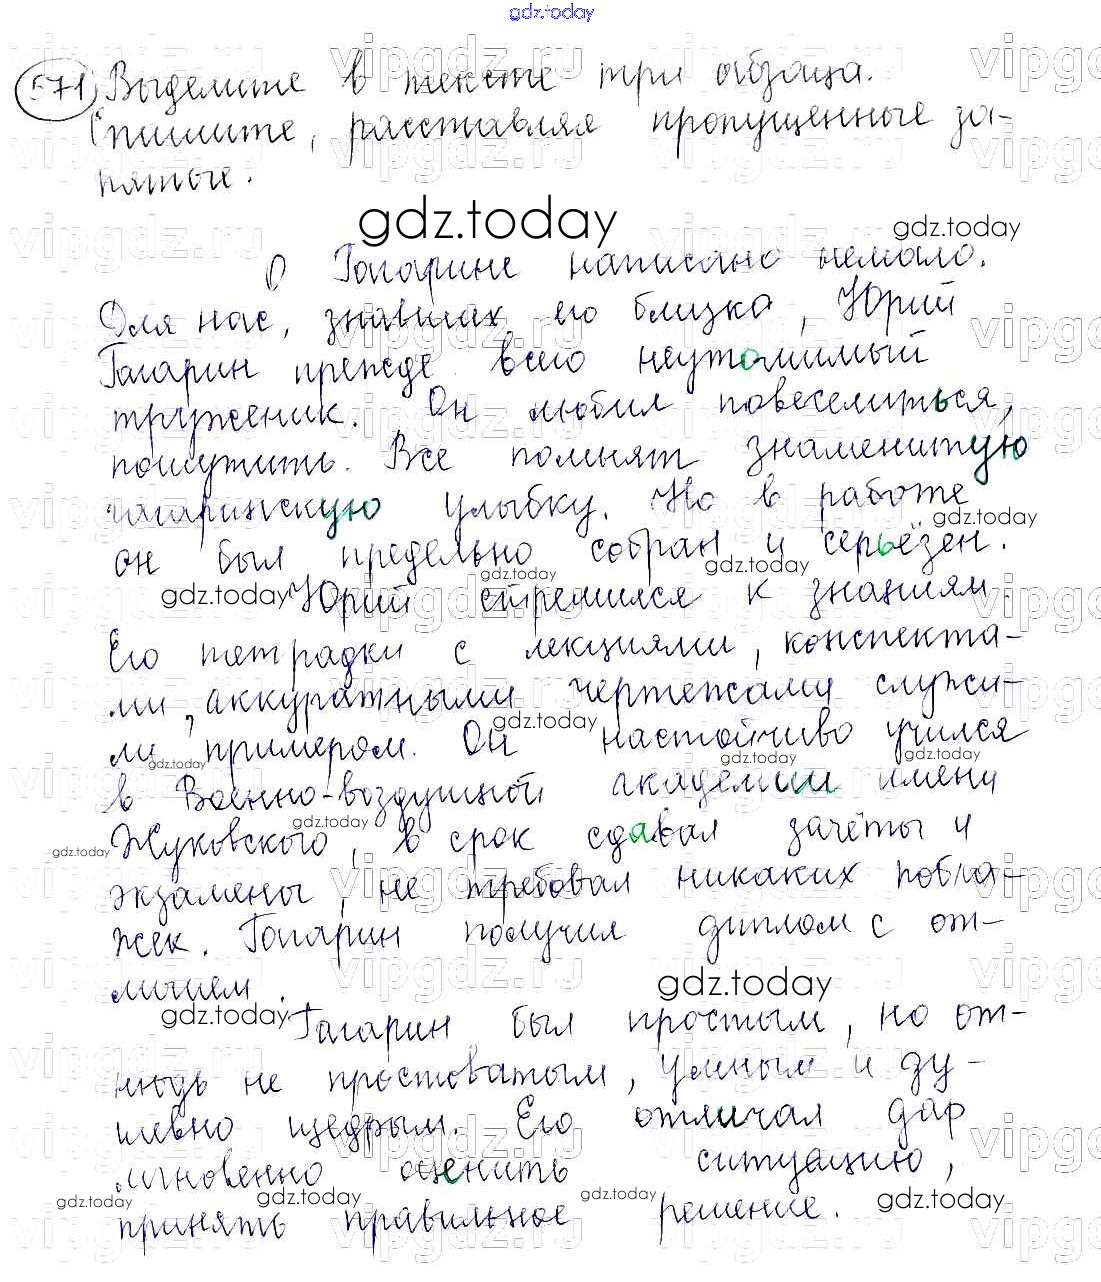 gdz.today
571 Выделите в тексте три абзаца.
Спишите, расставляя пропущенные за-
пятые.
gdz.today
gdz.today
О Гагарине написано немало.
Для нас, знавших его близко, Юрий
Гагарин прежде всего неутомимый
труженик. Он любил повеселиться,
пошутить. Все помнят знаменитую
гагаринскую улыбку. Но в работе
gdz.today
он был предельно собран и серьёзен.
gdz.today
gdz.today
gdz.today
Юрий стремился к знаниям.
Его тетрадки с лекциями, конспекта-
ми, аккуратными чертежами служи-
gdz.today
ли примером. Он настойчиво учился
gdz.today
gdz.today
gdz.today
в Военно-воздушной академии имени
gdz.today
Жуковского, в срок сдавал зачёты и
gdz.today
экзамены, не требовал никаких побла-
жек. Гагарин получил диплом с от-
личием.
gdz.today
gdz.today
Гагарин был простым, но от-
нюдь не простоватым, умным и ду-
шевно щедрым. Его отличал дар
мгновенно оценить ситуацию,
gdz.today
gdz.today
gdz.today
gdz.today
принять правильное решение.